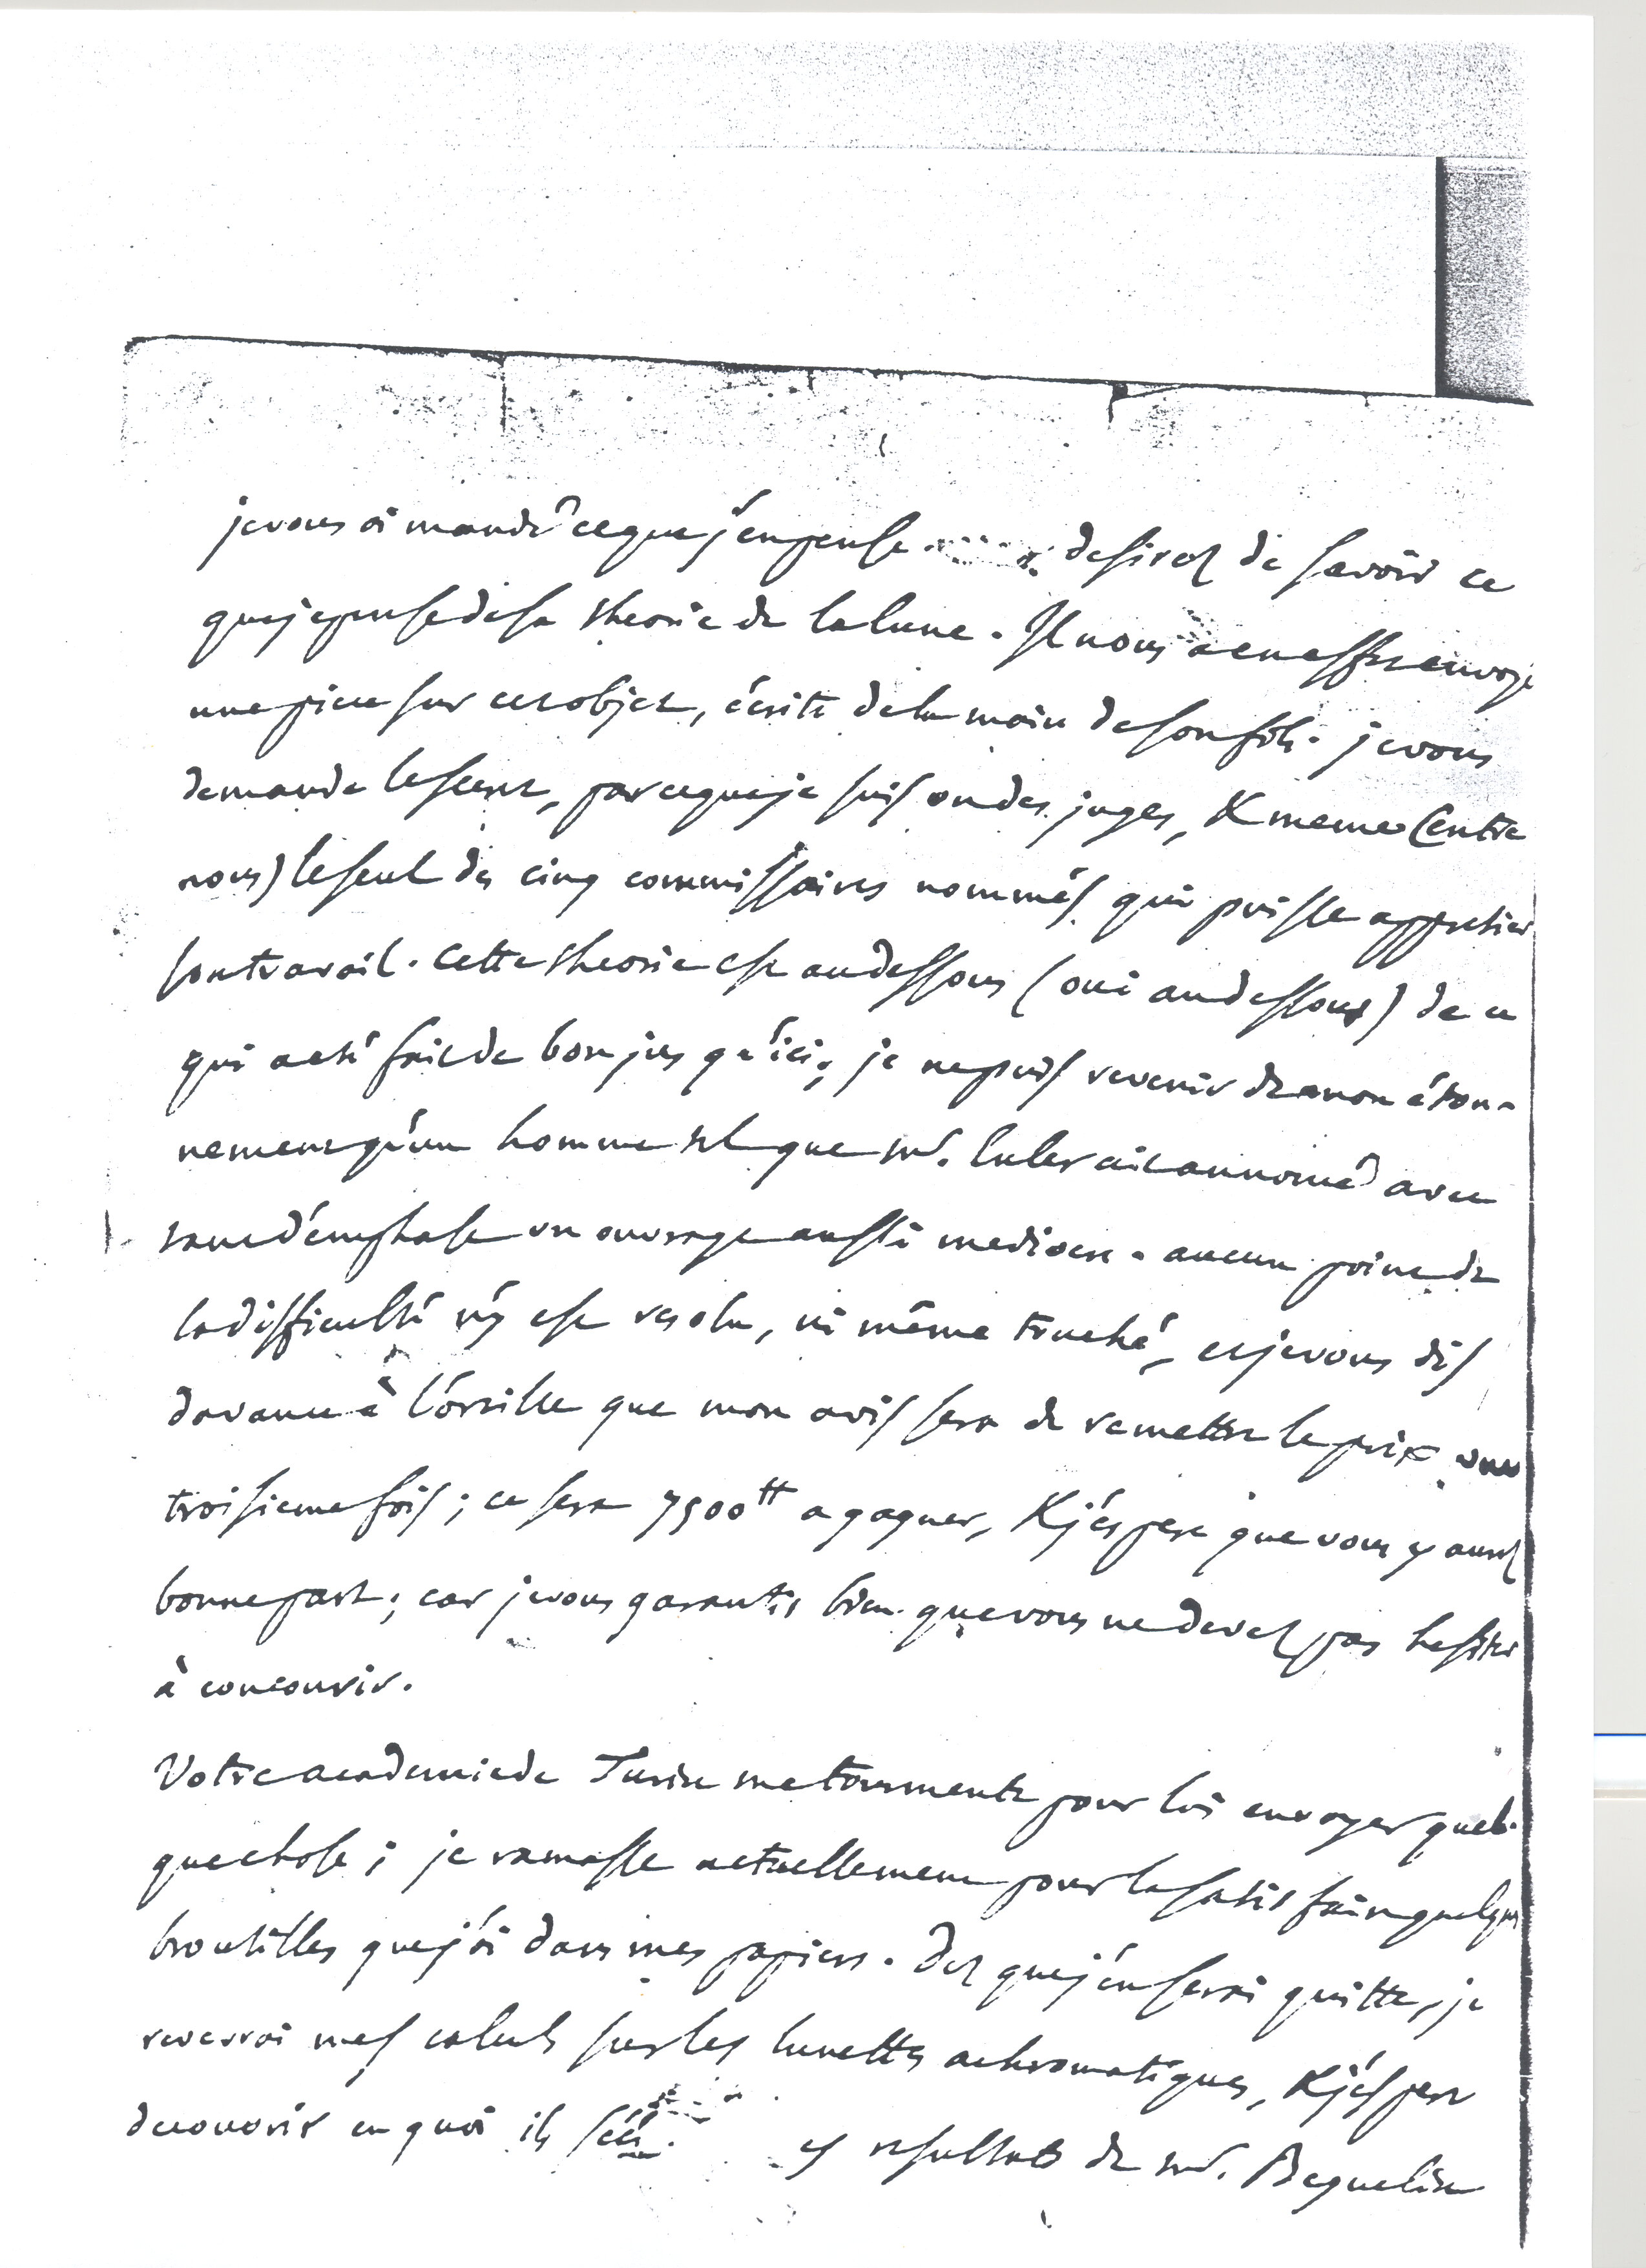 je vous ai mandé ce que j'en pense. desirez de savoir ce
que je pense de sa theorie de la lune. Il nous a en effet envoyé
une piece sur cet objet, écrite de la main de son fils. je vous
demande le secret, parceque je suis un des juges, & meme (entre
nous) le seul des cinq commissaires nommés qui puisse appretier
son travail. Cette theorie est au dessous (oui au dessous) de ce
qui a eté fait de bon jus qu'ici; je ne puis revenir de mon éton-
nement qu'un homme tel que Mr. Euler ait annoncé avec
tant d'emphase un ouvrage aussi mediocre. aucun point de
la difficulté n'y est resolu, ni même touché, et je vous dis
d'avance à l'oreille que mon avis sera de remettre le prix une
troisieme fois; ce sera 7500tt a gagner, & j'espere que vous y aurez
bonne part; car je vous garantis bien que vous ne devez pas hesiter
à concourir.
Votre academie de Turin me tourmente pour lui envoyer quel-
que chose; je ramasse actuellement pour la satisfaire quelques
broutilles que j'ai dans mes papiers. Dez que j'en serai quitte, je
reverrai mes calculs sur les lunettes achromatiques, & j'espere
decouvrir en quoi ils resultats de Mr. Beguelin